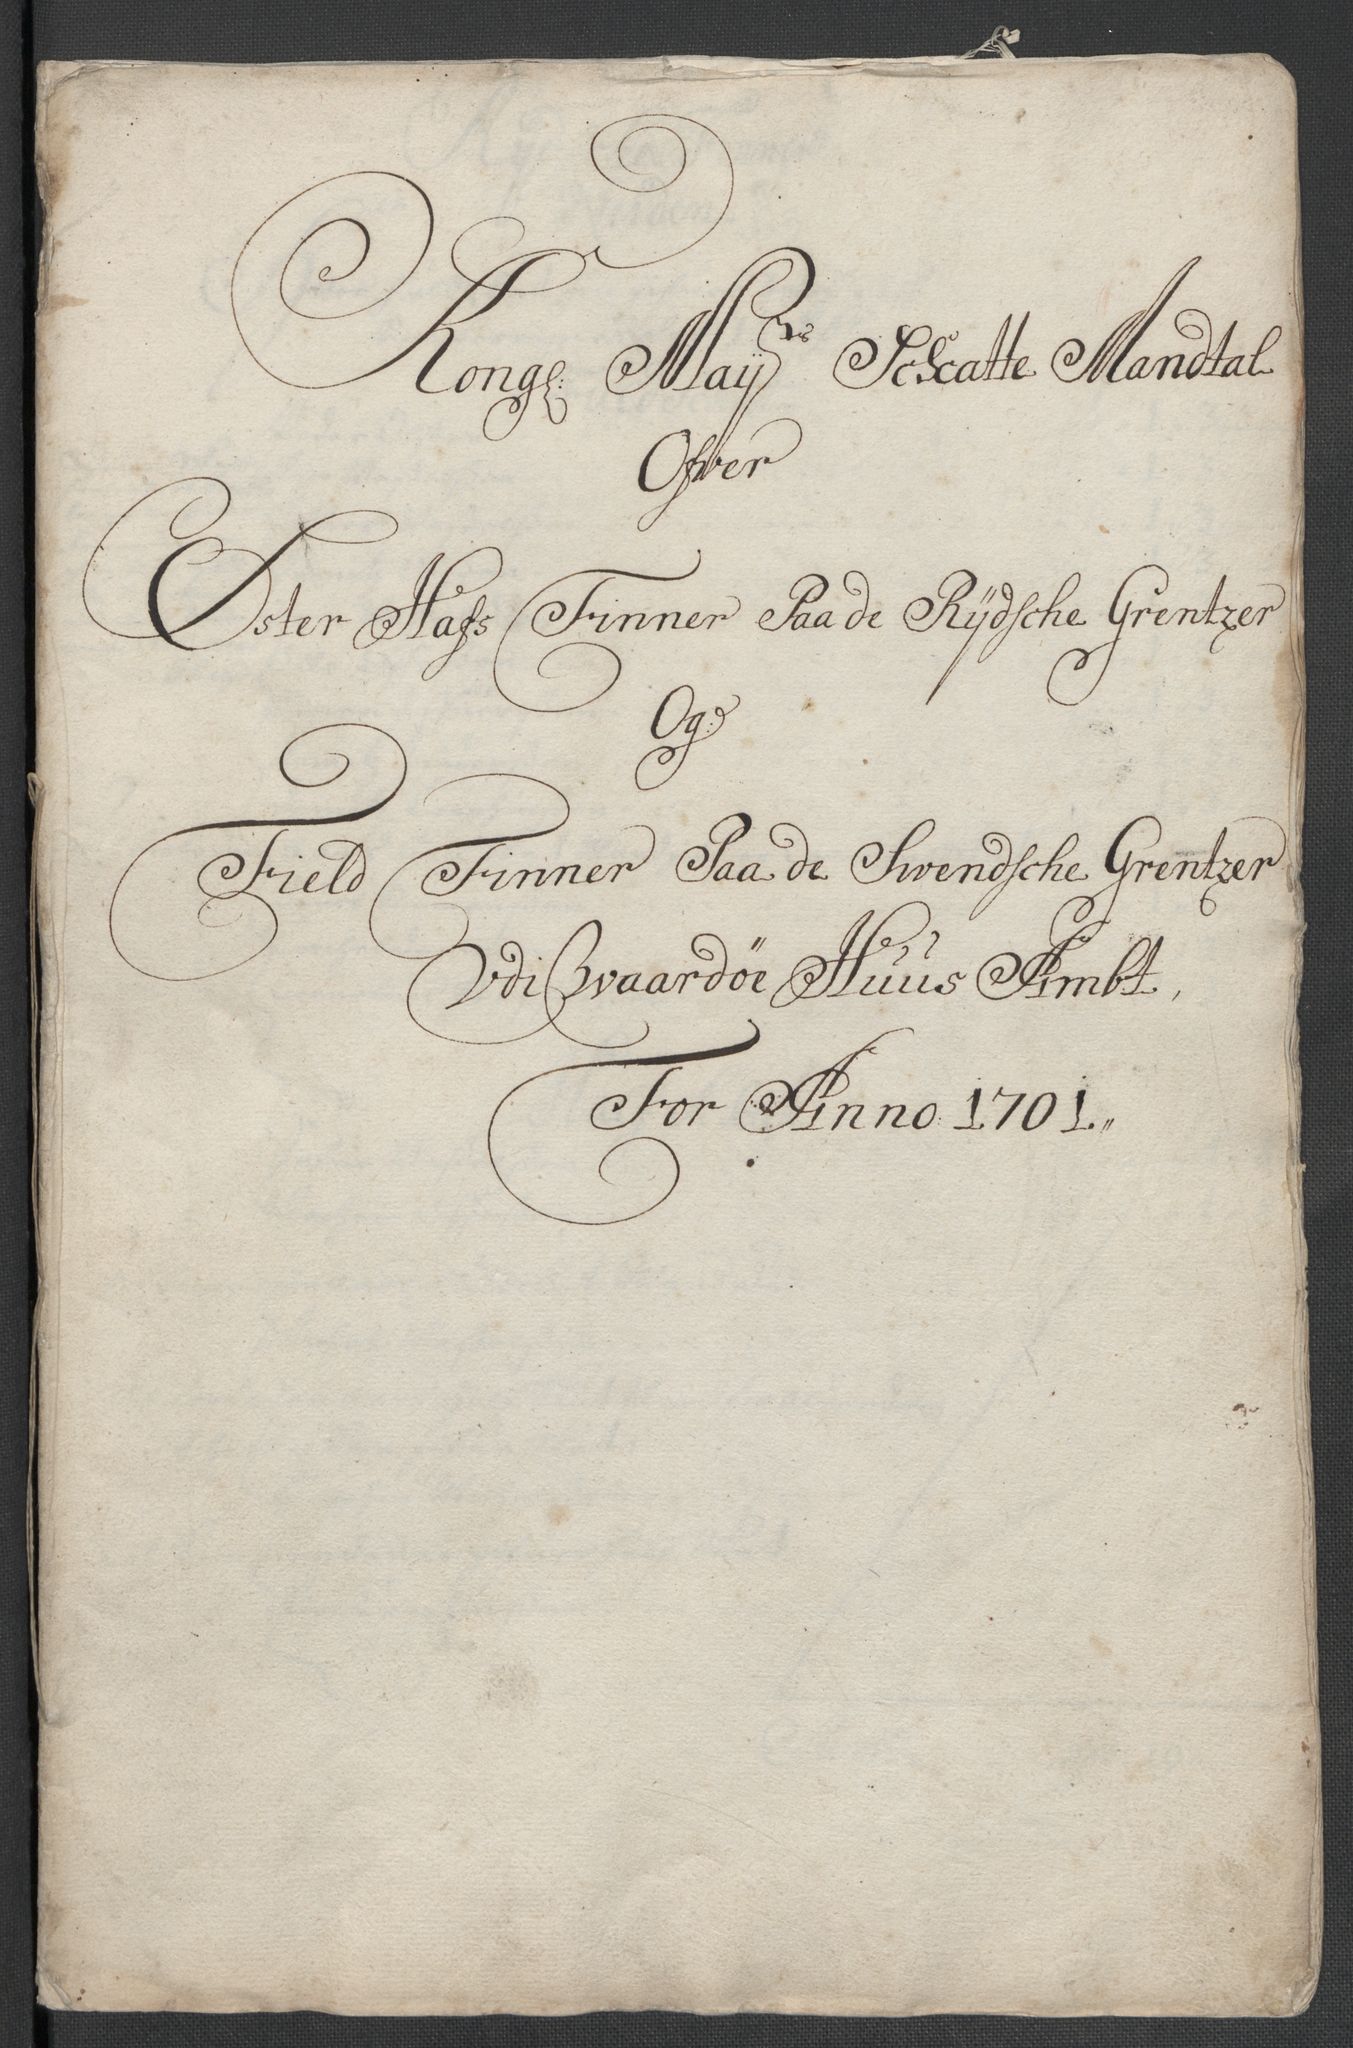 Kongl: Maÿts Schatte Mandtal
Ofwer
Öster Hafs Finner Paa de Rÿdsche Grentzer
Og:
Field Finner Paa de Swendsche Grentzer
Vdi Waardöe Huus Ambt,
For Anno 1701